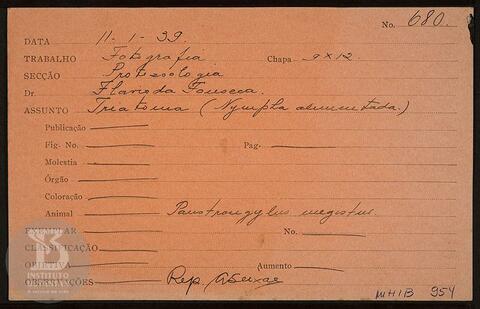 No. 680.
DATA 11-1-39.
TRABALHO Fotografia Chapa 9x12
SECÇÃO Protozoologia
Dr. Flavio da Fonseca.
ASSUNTO Triatoma (Nympha alimentada.)
Publicação
Fig. No. Pag.
Molestia
Órgão
Coloração
Animal Panstrongylus megistus.
EXEMPLAR No.
CLASSIFICAÇÃO
OBJETIVA Aumento
OBSERVAÇÕES Rep.
INSTITUTO
MHIB 954